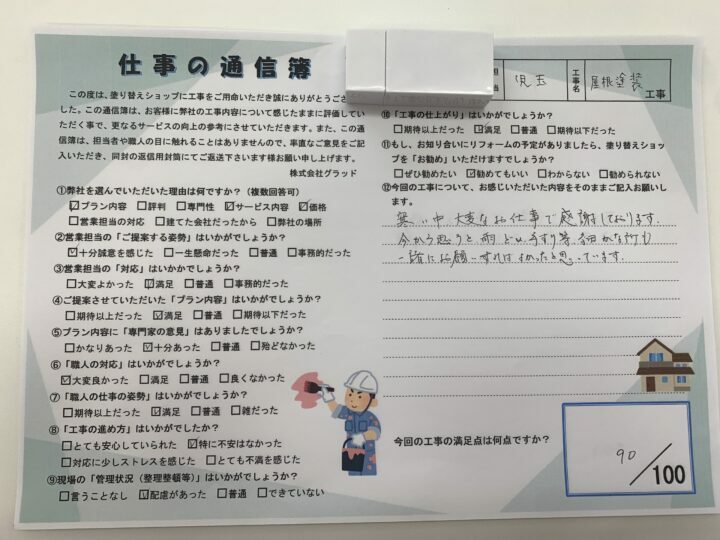 仕事の通信簿
この度は、塗り替えショップに工事をご用命いただき誠にありがとうござ
した。この通信簿は、お客様に弊社の工事内容について感じたままに評価してい
ただく事で、更なるサービスの向上の参考にさせていただきます。また、この通
信簿は、担当者や職人の目に触れることはありませんので、率直なご意見をご記
入いただき、同封の返信用封筒にてご返送下さいます様お願い申し上げます。
株式会社グラッド
①弊社を選んでいただいた理由は何ですか?（複数回答可）
☑プラン内容 □評判 □専門性 ☑サービス内容 ☑価格
□営業担当の対応 □建てた会社だったから □弊社の場所
②営業担当の「ご提案する姿勢」はいかがでしょうか?
☑十分誠意を感じた □一生懸命だった □普通 □事務的だった
③営業担当の「対応」はいかかでしょうか?
□大変よかった ☑満足 □普通 □事務的だった
④ご提案させていただいた「プラン内容」はいかがでしょうか?
□期待以上だった ☑満足 □普通 □期待以下だった
⑤プラン内容に「専門家の意見」はありましたでしょうか?
□かなりあった ☑十分あった □普通 □殆どなかった
⑥「職人の対応」はいかがでしょうか?
☑大変良かった □満足 □普通 □良くなかった
⑦「職人の仕事の姿勢」がいかがでしょうか?
□期待以上だった ☑満足 □普通 □雑だった
⑧「工事の進め方」はいかがでしたか?
□とても安心していられた ☑特に不安はなかった
□対応に少しストレスを感じた □とても不満を感じた
⑨現場の「管理状況（整理整頓等）」はいかがでしょうか?
□言うことなし ☑配慮があった □普通 □できていない
当 児玉 工事名 屋根塗装 工事
⑩「工事の仕上がり」はいかがでしょうか?
□期待以上だった ☑満足 □普通 □期待以下だった
⑪もし、お知り合いにリフォームの予定がありましたら、塗り替えショッ
プを「お勧め」いただけますでしょうか?
□ぜひ勧めたい ☑勧めてもいい □わからない □勧められない
⑫今回の工事について、お感じいただいた内容をそのままご記入お願いしま
す。
寒い中 大変なお仕事で感謝しております。
今から思うと 雨どい、手すり等、細かな所も
一緒にお願いすればよかったと思っています。
今回の工事の満足点は何点ですか?
90/100